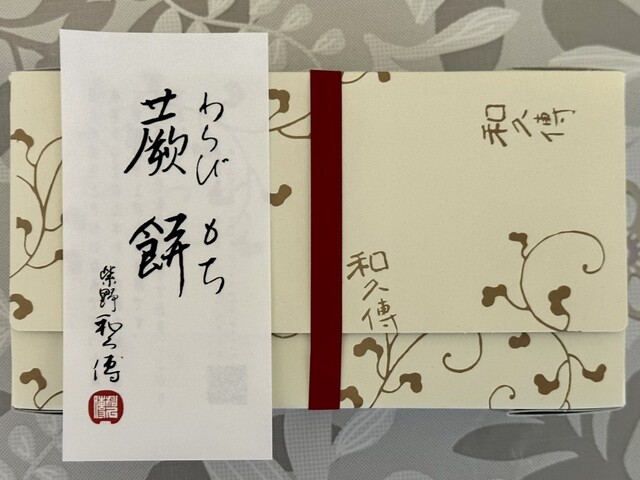 わらび もち
蕨餅
紫野 和久傳
和久傳
和久傳